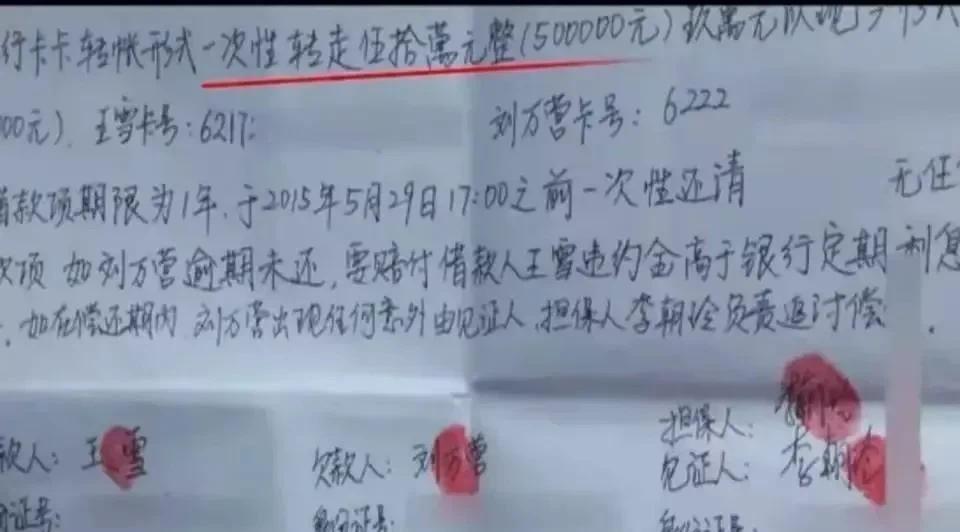 行卡卡转帐形式一次性转走伍拾萬元整(500000元)玖萬元以现
00元)、王雪卡号:6217: 刘万营卡号:6222
借款项期限为1年,于2015年5月29日17:00之前一次性还清 无任
款项 如刘万营逾期未还,要赔付借款人王雪违约金高于银行定期利息
.如在偿还期内 刘万营出现任何意外由见证人、担保人李朝玲负责追讨偿 .
担保人:
款人:王雪 欠款人:刘万营 见证人:李朝
份证号: 身份证号: 身份证号: